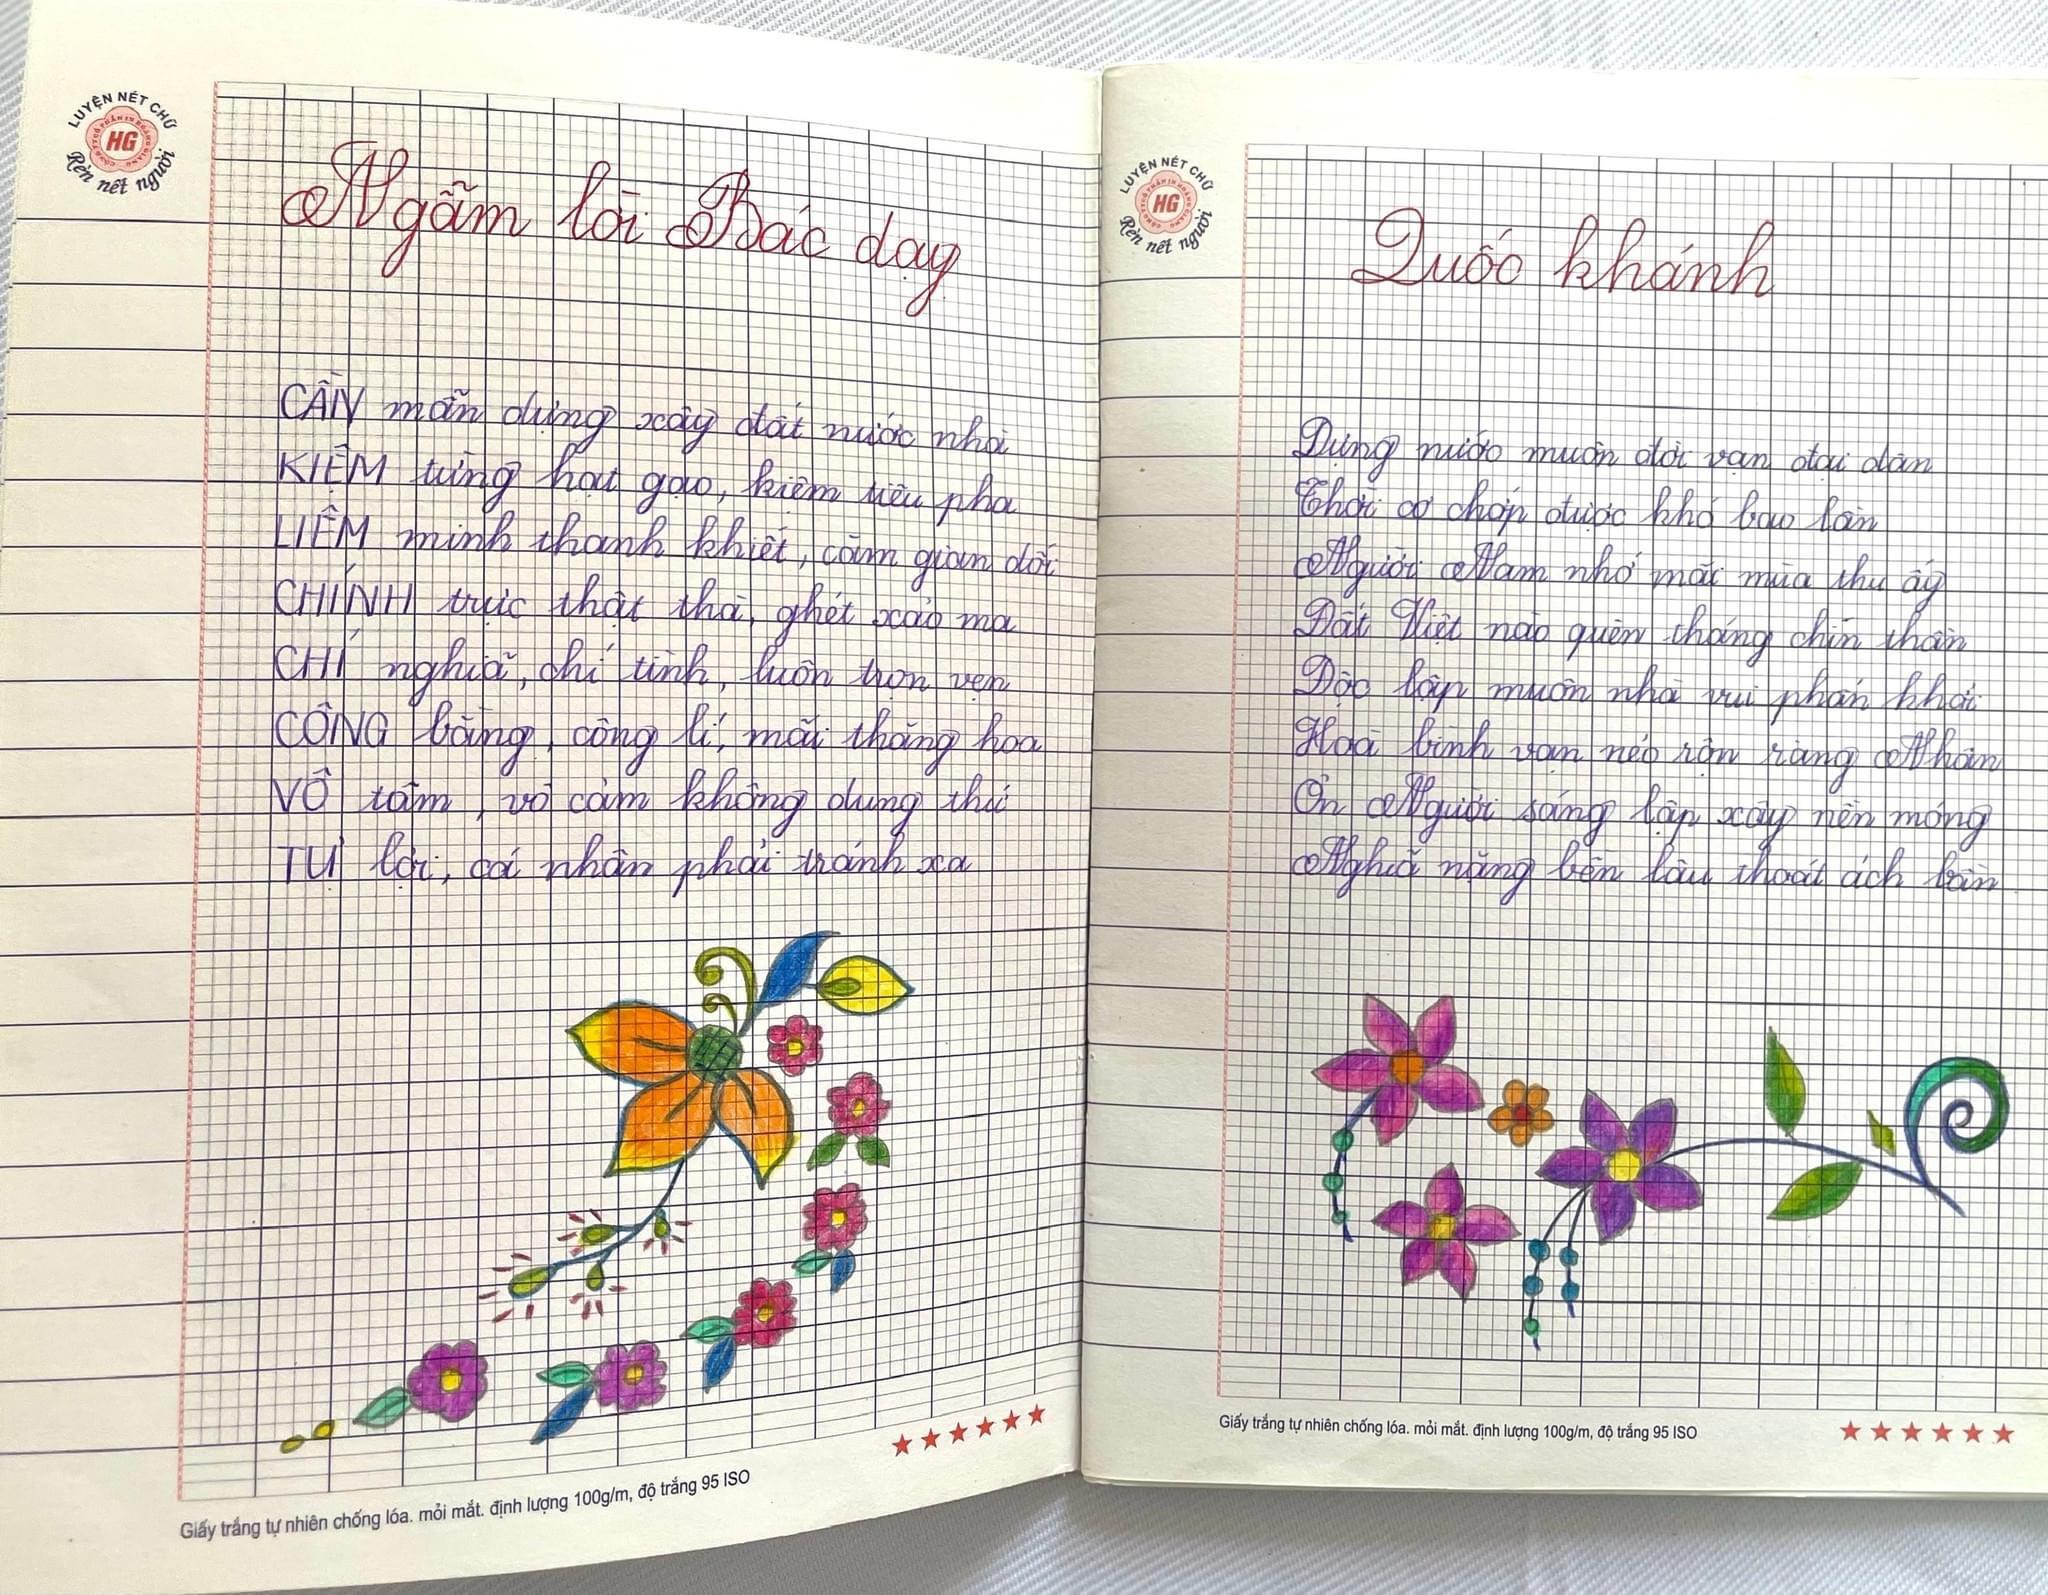 LUYỆN NÉT CHỮ
HG
Rèn nết người
Ngẫm lời Bác dạy
CẦN mẫn dựng xây đất nước nhà
KIỆM từng hạt gạo, kiệm tiêu pha
LIÊM minh thanh khiết, căm gian dối
CHÍNH trực thật thà, ghét xảo ma
CHÍ nghĩa, chí tình, luôn trọn vẹn
CÔNG bằng, công lí, mãi thăng hoa
VÔ tâm, vô cảm không dung thứ
TƯ lợi, cá nhân phải tránh xa
Giấy trắng tự nhiên chống lóa. mỏi mắt. định lượng 100g/m, độ trắng 95 ISO
LUYỆN NÉT CHỮ
HG
Rèn nết người
Quốc khánh
Dựng nước muôn đời vạn đại dân
Thời cơ chớp được khó bao lần
Người Nam nhớ mãi mùa thu ấy
Đất Việt nào quên tháng chín thần
Độc lập muôn nhà vui phấn khởi
Hoà bình vạn nẻo rộn ràng Nhân
Ơn Người sáng lập xây nền móng
Nghĩa nặng bền lâu thoát ách bần
Giấy trắng tự nhiên chống lóa. mỏi mắt. định lượng 100g/m, độ trắng 95 ISO